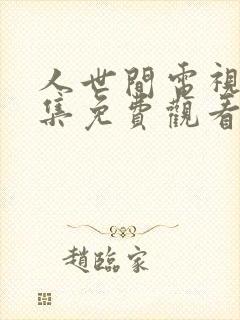 人世間電視
集免費觀看
趙臨家